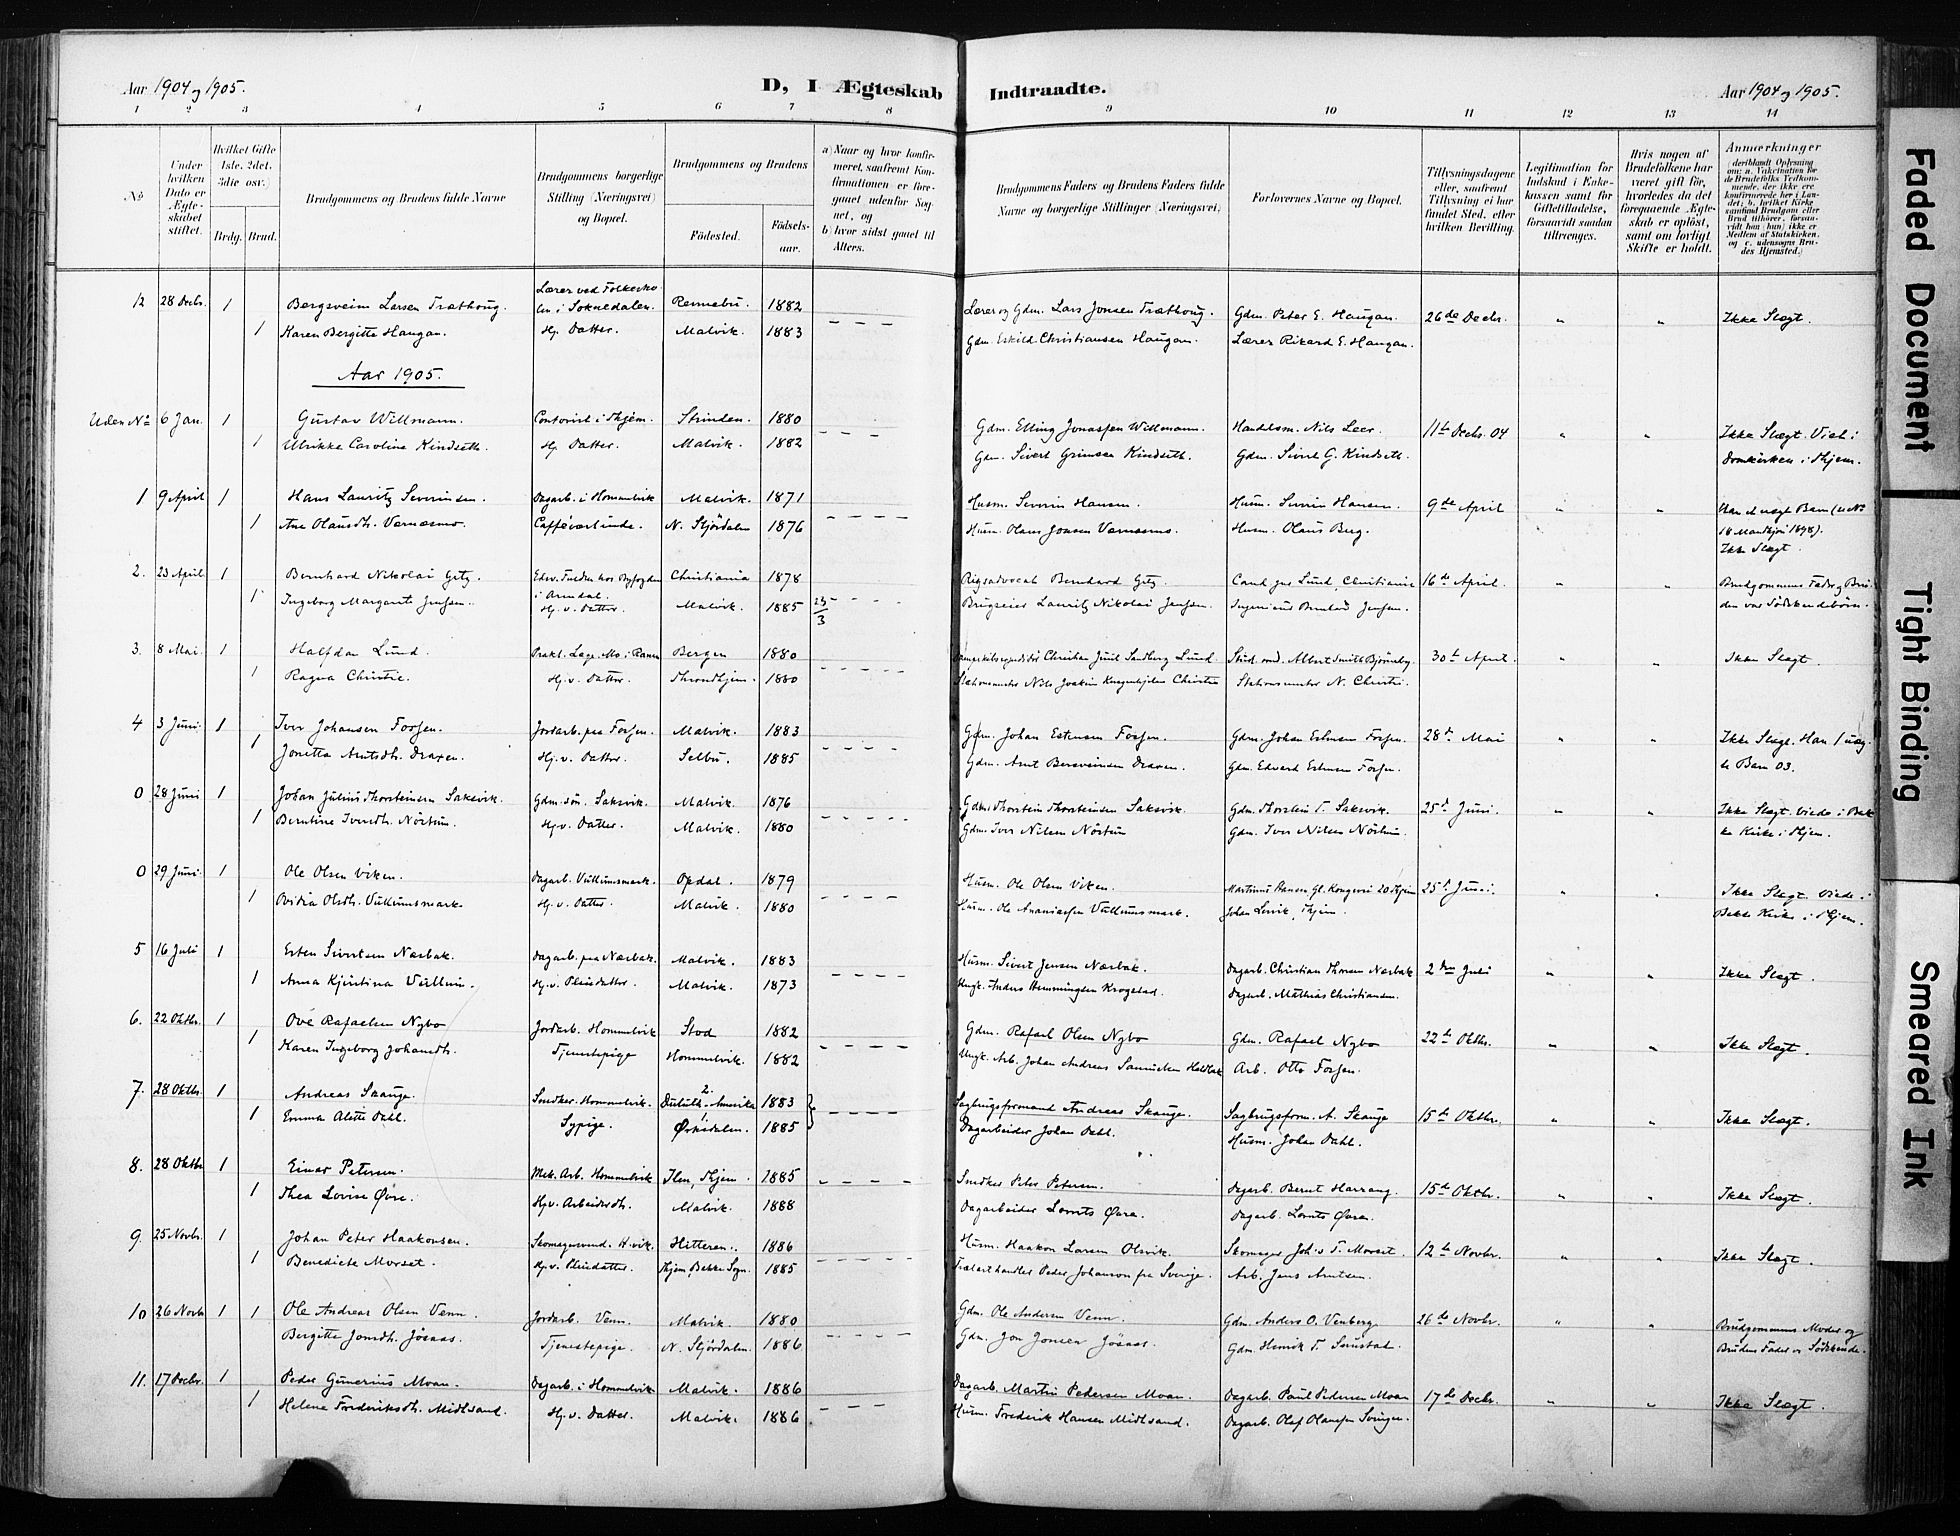 Aar 1904 og 1905.
D, I Ægteskab Indtraadte.
Aar 1904 og 1905.
1 2 3 4 5 6 7 8 9 10 11 12 13 14
No
Under hvilken Dato er Ægteskabet stiftet.
Hvilket Gifte 1ste, 2det, 3die osv.)
Brdg. Brud.
Brudgommens og Brudens fulde Navne
Brudgommens borgerlige Stilling (Næringsvei) og Bopæl.
Brudgommens og Brudens
Födested.
Födselsaar.
a) Naar og hvor konfirmeret, saafremt Konfirmationen er foregaaet udenfor Sognet, og
b) hvor sidst gaaet til Alters.
Brudgommens Faders og Brudens Faders fulde Navne og borgerlige Stillinger (Næringsvei)
Forlovernes Navne og Bopæl.
Tillysningsdagene eller, saafremt Tillysning ei har fundet Sted, efter hvilken Bevilling.
Legitimation for Indskud i Enkekassen samt for Giftetilladelse, forsaavidt saadan tiltrænges.
Hvis nogen af Brudefolkene har været gift før, hvorledes da det foregaaende Ægteskab er opløst, samt om lovligt Skifte er holdt.
Anmærkninger
(deriblandt Oplysning om: a. Vakcination for de Brudefolks Vedkommende, der ikke ere konfirmerede her i Landet; b. hvilket Kirkesamfund Brudgom eller Brud tilhörer, forsaavidt han (hun) ikke er Medlem af Statskirken, og c. udensogns Brudes Hjemsted.)
12 28 Decbr. 1 Bergsveim Larsen Træthoug. Lærer ved Folkeskolen i Soknedalen. Rennebu. 1882 Lærer og Gdm. Lars Jonsen Træthoug. Gdm. Peter E. Haugan. 26de Decbr. " " Ikke Slægt.
1 Karen Bergitte Haugan. Hj. Datter. Malvik. 1883 Gdm. Eskild Christiansen Haugan. Lærer Rikard E. Haugan.
Aar 1905.
Uden No 6 Jan. 1 Gustav Willmann. Contorist i Thjem. Strinden. 1880 Gdm. Elling Jonassen Willmann. Handelsm. Nils Leer. 11te Decbr. 04 " " Ikke Slægt. Viet i
1 Ulrikke Caroline Kindseth. Hj. Datter. Malvik. 1882 Gdm. Sivert Grimsen Kindseth. Gdm. Sivert G. Kindseth. Domkirken i Thjem.
1 9 April 1 Hans Lauritz Severinsen. Dagarb. i Hommelvik Malvik. 1871 Husm. Severin Hansen. Husm. Severin Hansen. 9de April " " Han et uægt Barn (u No
1 Ane Olausdt. Værnæsmo. Cafféværtinde. N. Stjördalen 1876 Husm. Olaus Jonsen Værnæsmo. Husm. Olaus Berg. 18 Mandkjön 1898). Ikke Slægt.
2. 23 April. 1 Bernhard Nikolai Getz. Christiania 1878 Rigsadvocat Bernhard Getz. Cand. jus Lund, Christiania 16de April. " " Brudgommens Fader og Bruden var Södskendebörn.
1 Ingeborg Margarete Jenssen. i Arendal. Hj. v. Datter. Malvik. 1885 23/3 Brugseier Lauritz Nikolai Jenssen. Ingeniør Bernhard Jenssen.
3. 8 Mai. 1 Halfdan Lund. Prakt. Læge, Mo i Ranen Bergen 1880 Christian Juul Sandberg Lund. Stud. med. Albert Smith Bjørneby. 30te April. " " Ikke Slægt.
1 Ragna Christie. Hj. v. Datter. Throndhjem. 1880 Stationsmester Nils Joakim Christie Stationsmester N. Christie.
4 3 Juni. 1 Iver Johansen Forsen. Jordarb. paa Forsen. Malvik. 1883 Gdm. Johan Estensen Forsen. Gdm. Johan Estensen Forsen. 28de Mai " " Ikke Slægt. Han 1 uæg-
1 Jonetta Arntsdt. Draxen. Hj. v. Datter. Selbu. 1885 Gdm. Arnt Bersveinsen Draxen. Gdm. Edvard Estensen Forsen. te Barn 03.
0 28 Juni 1 Johan Julius Thorsteinsen Saksvik. Gdm. sön. Saksvik. Malvik. 1876 Gdm. Thorstein Thorsteinsen Saksvik. Gdm. Thorstein T. Saksvik. 25de Juni. " " Ikke Slægt. Viede i Bak-
1 Berntine Iversdt. Nörtun. Hj. v. Datter. Malvik. 1880 Gdm. Iver Nilsen Nörtun Gdm. Iver Nilsen Nörtun. ke Kirke i Thjem.
0 29 Juni. 1 Ole Olsen Viken. Dagarb. Vullumsmark. Opdal. 1879 Husm. Ole Olsen Viken. Martinus Hansen Gl. Kongevei 20 Thjem 25de Juni. " " Ikke Slægt. Viede i
1 Olsdt. Vullumsmark. Hj. v. Datter. Malvik. 1880 Husm. Ole Ananiassen Vullumsmark. Johan Lervik, Thjem. Bakke Kirke i Thjem.
5 16 Juli 1 Esten Sivertsen Næsbak. Dagarb. paa Næsbak. Malvik. 1883 Husm. Sivert Jensen Næsbak. Dagarb. Christian Thorsen Næsbak 2den Juli " " Ikke Slægt.
1 Anna Kjerstina Vullum. Hj. v. Pleiedatter. Malvik. 1873 Ungk. Anders Hemmingsen Krogstad. Dagarb. Mathias Christiansen
6. 22 Oktbr. 1 Ove Rafaelsen Nybo Jordarb. Hommelvik Stod 1882 Gdm. Rafael Olsen Nybo Gdm. Rafael Nybo 22de Oktbr. " " Ikke Slægt.
1 Karen Ingeborg Johansdt. Tjenestepige Hommelvik. 1882 Ungk. Arb. Johan Andreas Haldbak Arb. Otto Forsen.
7. 28 Oktbr. 1 Andreas Skauge. Snedker. Hommelvik. 2. Duluth Amerika 1883 Sagbrugsformand Andreas Skauge. Sagbrugsform. A. Skauge 15de Oktbr. " " Ikke Slægt.
1 Emma Alette Dahl. Sypige. 1. Ørkedalen. 1885 Dagarbeider Johan Dahl. Husm. Johan Dahl.
8. 28 Oktbr 1 Einar Petersen. Mek. Arb. Hommelvik Ilen, Thjem. 1885 Snedker Peter Petersen. Dagarb. Bernt Harrang. 15de Oktbr. " " Ikke Slægt.
1 Thea Lovise Øvre. Hj. v. Arbeiderdt. Malvik. 1888 Dagarbeider Lornts Øvre. Dagarb. Lornts Øvre.
9. 25 Novbr. 1 Johan Peter Haakonsen. Skomagersvend. H.vik. Hitteren. 1886 Husm. Haakon Larsen Olsvik. Skomager Joh. v. T. Morset. 12te Novbr. " " Ikke Slægt.
1 Benedicte Morset. Hj. v. Pleiedatter. Thjem, Bakke Sogn. 1885 Trælasthandler Peder Johanson fra Sverige. Arb. Jens Arntsen.
10 26 Novbr 1 1 Ole Andreas Olsen Venn. Jordarb. Venn. Malvik. 1880 Gdm. Ole Andersen Venn. Gdm. Anders O. Venberg. 26de Novbr. " " Brudgommens Moder og
Bergitte Jonsdt. Jösnas. Tjenestepige. N. Stjördalen. 1886 Gdm. Jon Jonsen Jösnas. Gdm. Henrik T. Brudens Fader er Södskende.
11. 17 Decbr. 1 Peder Gunerius Moan. Dagarb. i Hommelvik Malvik. 1886 Dagarb. Martin Pedersen Moan. Dagarb. Paul Pedersen Moan 17de Decbr. " " Ikke Slægt.
1 Helene Frederiksdt. Midtsand. Hj. v. Datter. Malvik. 1886 Husm. Frederik Hansen Midtsand. Dagarb. Olaf Olaussen Svingen
Faded Document
Tight Binding
Smeared Ink